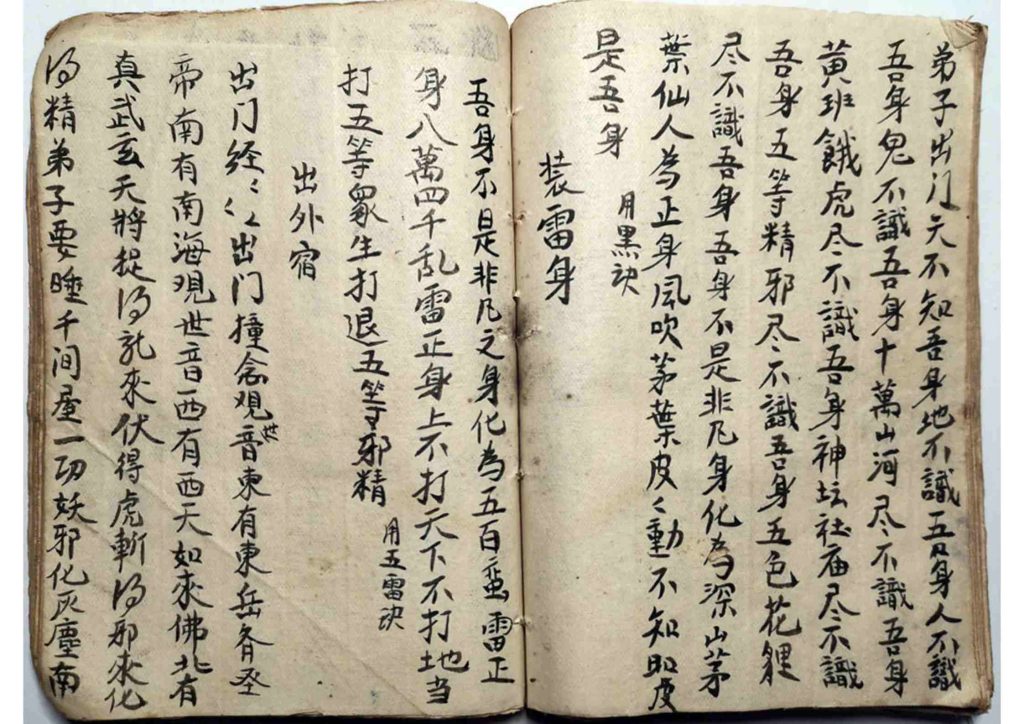 弟子出门天不知吾身地不識吾身人不識
吾身鬼不識吾身十萬山河尽不識吾身
黄班餓虎尽不識吾身神坛社庙尽不識
吾身五等精邪尽不識吾身五色花狸
尽不識吾身吾身不是非凡身化为深山茅
葉仙人為正身風吹茅葉皮々動不知
是吾身
用黑诀
装雷身
吾身不是非凡之身化為五百蛮雷正
身八萬四千乱雷正身上不打天下不打地当
打五等衆生打退五等邪精
用五雷诀
出外宿
出门经々々出门撞念观世音東有東岳
帝南有南海观世音西有西天如來佛北有
真武玄天將捉得龍來伏得虎斬得邪來化
得精弟子要睡千间屋一切妖邪化灰塵南